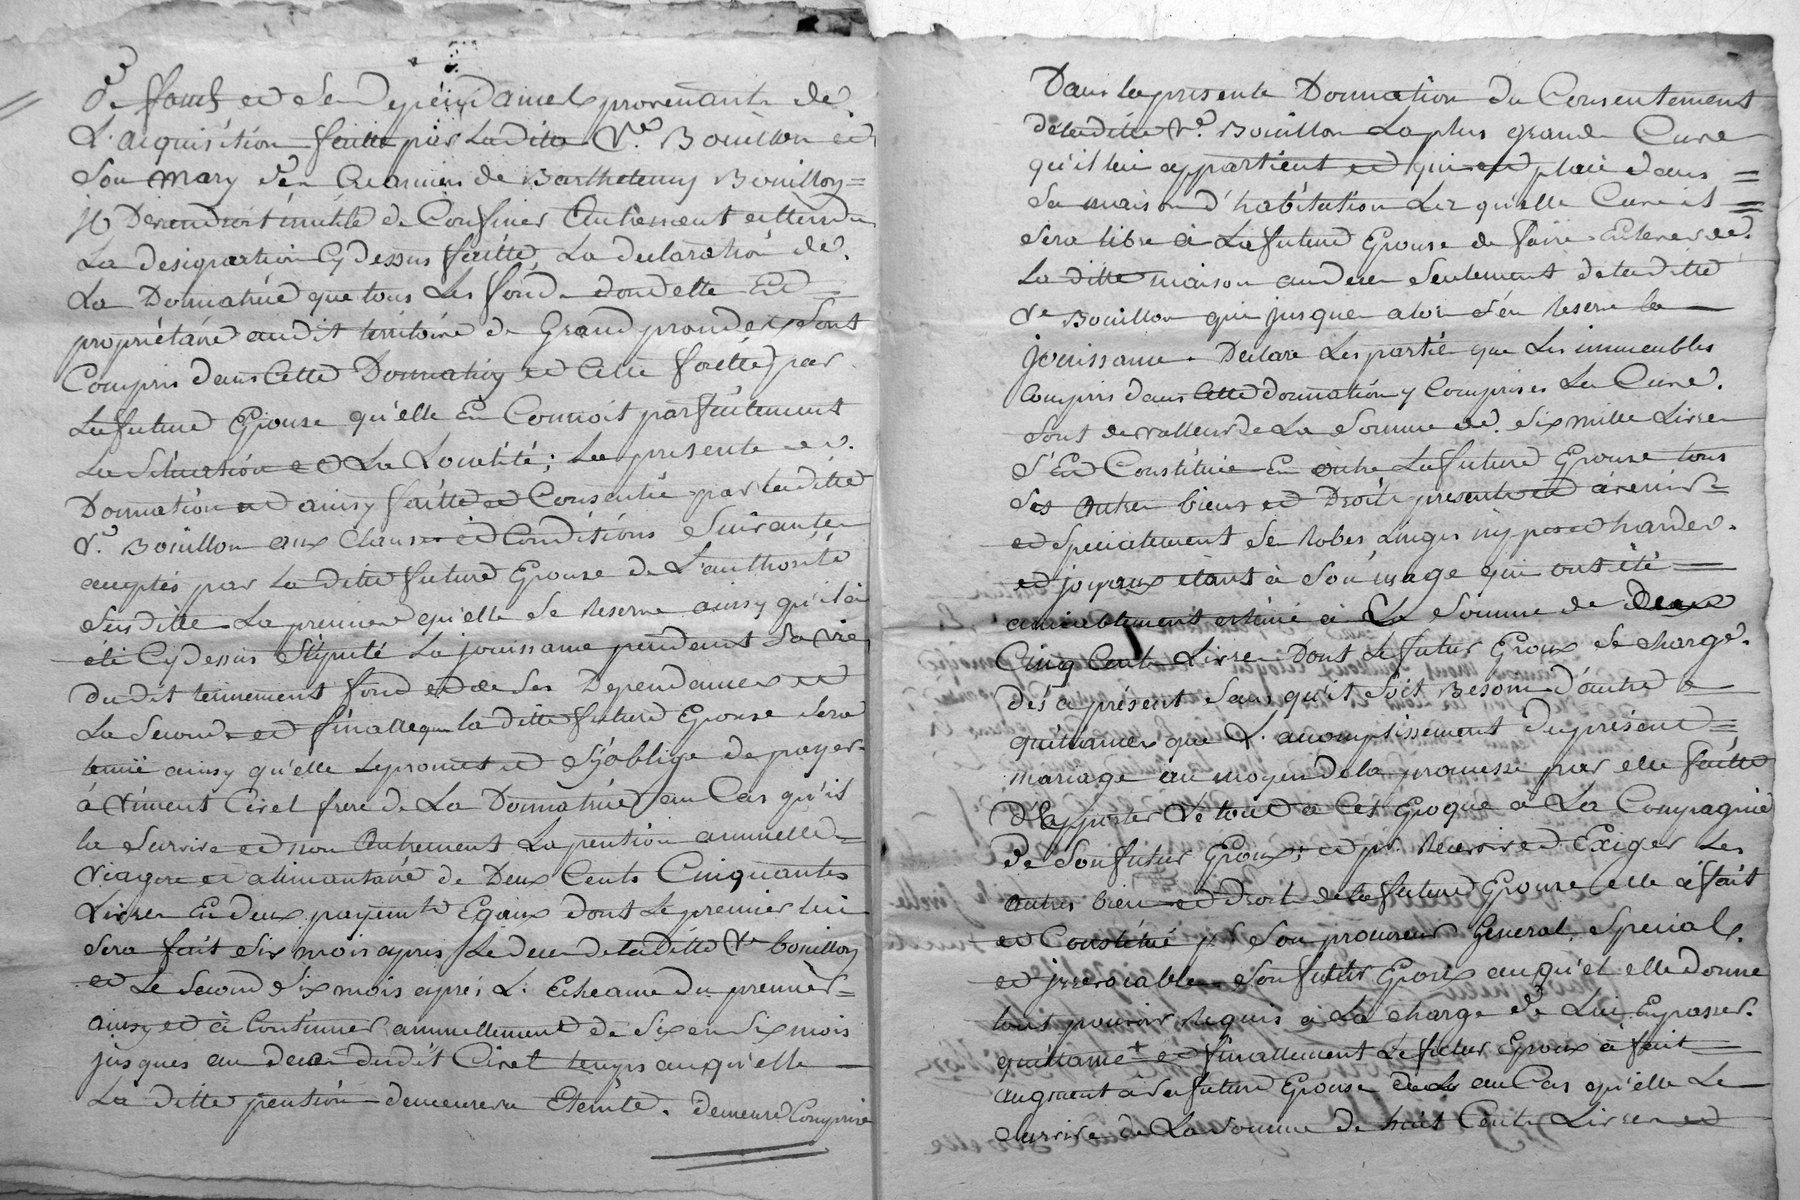 De fonds et Ses Dependances provenants de
L'acquisition faitte par Laditte Ve. Bouillon et
Son mary d'en Creanciers de Barthelemy Bouillon =
il Deviendroit inutile de Confiner Autrement attendu
La designation Cydessus faitte, La declaration de
La Donnatrice que tous Les fonds dont elle Est
propriétaire audit territoire de Grand sont
Compris dans Cette Donnation et Celle faitte par
La future Epouse qu'elle En Connoit parfaitement
La Situation et La Localité; La presente
Donnation est ainsy faitte et Consentie par laditte
Ve. Bouillon aux Clauses et Conditions Suivantes
acceptés par La ditte future Epouse de L'authorité
Susditte La premiere qu'elle Se Reserve ainsy qu'il a
eté Cydessus Stipulé La jouissance pendant Sa vie
dudit tennement fond et de Ses Dependances et
La Seconde et finalle que la ditte future Epouse Sera
tenue ainsy qu'elle Le promet et S'oblige de payer
à Vincent Ciret frere de La Donnatrice au Cas qu'il
la Survive et non Autrement La pention annuelle =
Viagere et alimantaire de Deux Cents Cinquantes
Livres En deux payements Egaux dont Le premier lui
Sera fait Six mois apres Le deces de laditte Ve bouillon
et Le Second Six mois aprés L'Echeance du premier =
ainsy et à Continuer annuellement de Six en Six mois
jusques au deces dudit Ciret temps auquel
La ditte pention demeurera Eteinte. Demeure Comprise
Dans la presente Donnation du Consentement
de laditte Ve. Bouillon La plus grande Cuve
qu'il lui appartient et qui est placé dans =
Sa maison d'habitation Laquelle Cuve il =
Sera libre a La future Epouse de faire Enlever de
La ditte maison au deces Seulement de laditte
Ve Bouillon qui jusques alors S'en Reserve la
jouissance. Declare Les parties que Les immeubles
Compris dans Cette donnation y Comprises La Cuve
Sont de valleur de La Somme de Six mille Livres
S'Est Constituée En outre La future Epouse tous
Ses Autres biens et Droits presents et à venir =
et Specialement Ses Robes Linges nippes et hardes
et joyaux étant à Son usage qui ont été
amiablement estimé à La Somme de Deux
Cinq Cents Livres Dont Le futur Epoux Se charge
dés aprésent Sans qu'il Soit Besoin d'autre
quittance que L'acomplissement du présent =
mariage au moyen de la promesse par elle faitte
D'Apporter Le tout a Cet Epoque a La Compagnie
De Son futur Epoux; et pr Recevoir et Exiger Les
Autres biens et Droits de la future Epouse elle a fait
et Constitué pr Son procureur General, Special
et jrrevocable Son futur Epoux auquel elle donne
tout pouvoir Requis a La charge de Lui En passer
quittance + et finallement Le futur Epoux à fait
augment à Sa future Epouse au Cas qu'elle Le
Survive de La Somme de huit Cents Livres et